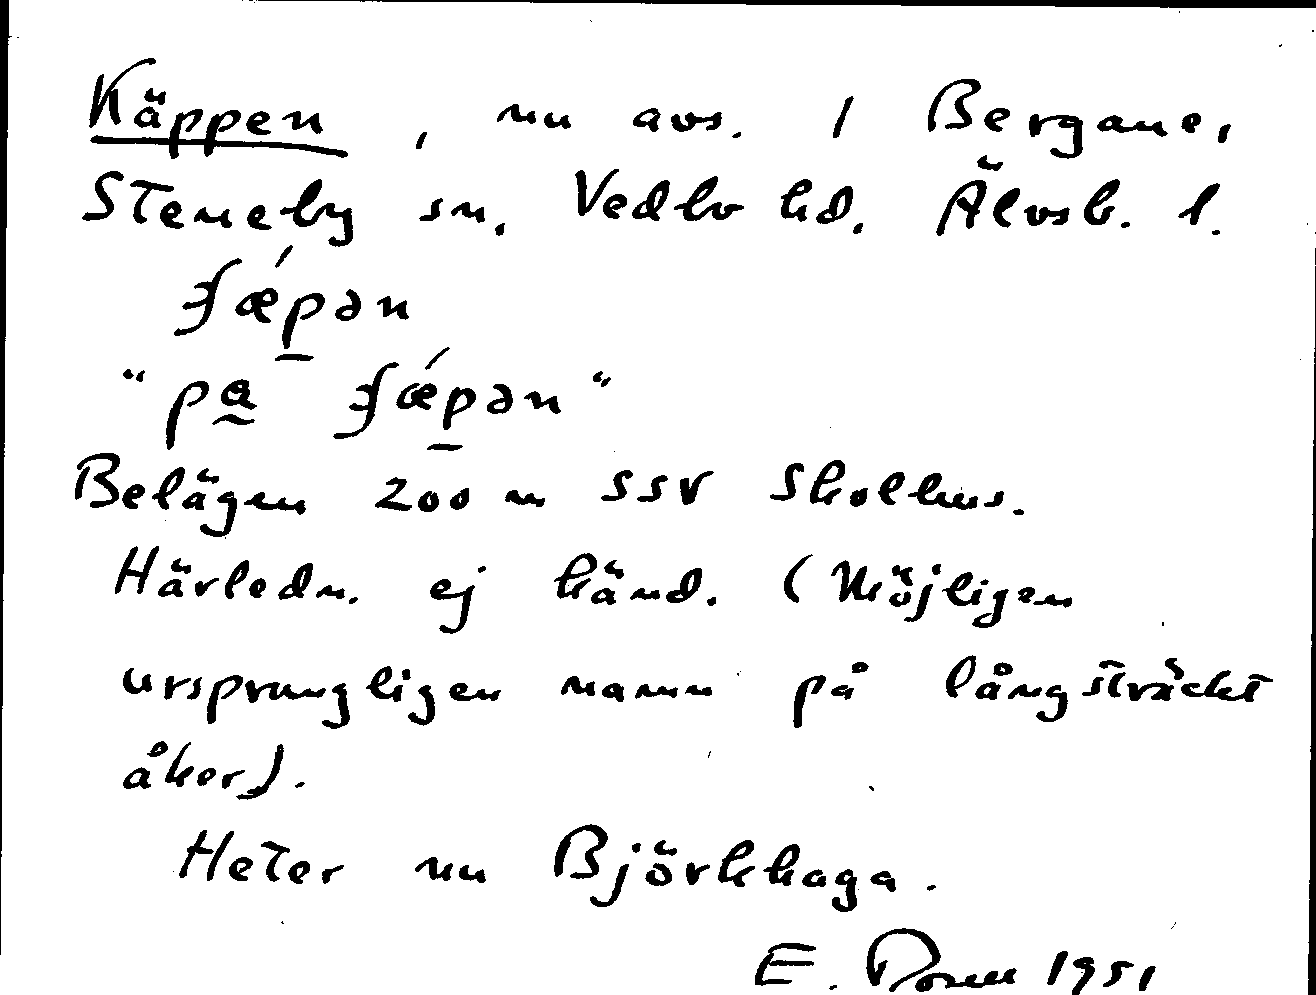 Käppen, nu avs. / Bergane,
Steneby sn. Vedbo hd. Älvsb. l.
ʃǽpən
"pa ʃǽpən"
Belägen 200 m SSV Skolhus.
Härledn. ej känd. (Möjligen
ursprungligen namn på långsträckt
åker).
Heter nu Björkhaga.
E. 1951